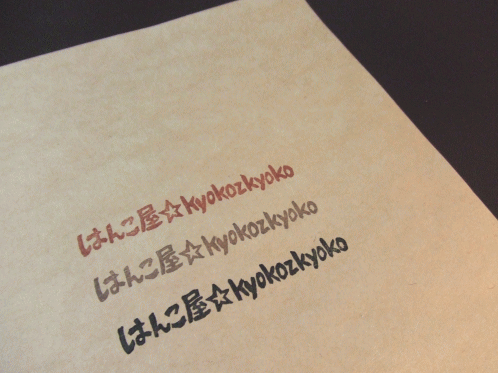 はんこ屋☆kyokozkyoko
はんこ屋☆kyokozkyoko
はんこ屋☆kyokozkyoko